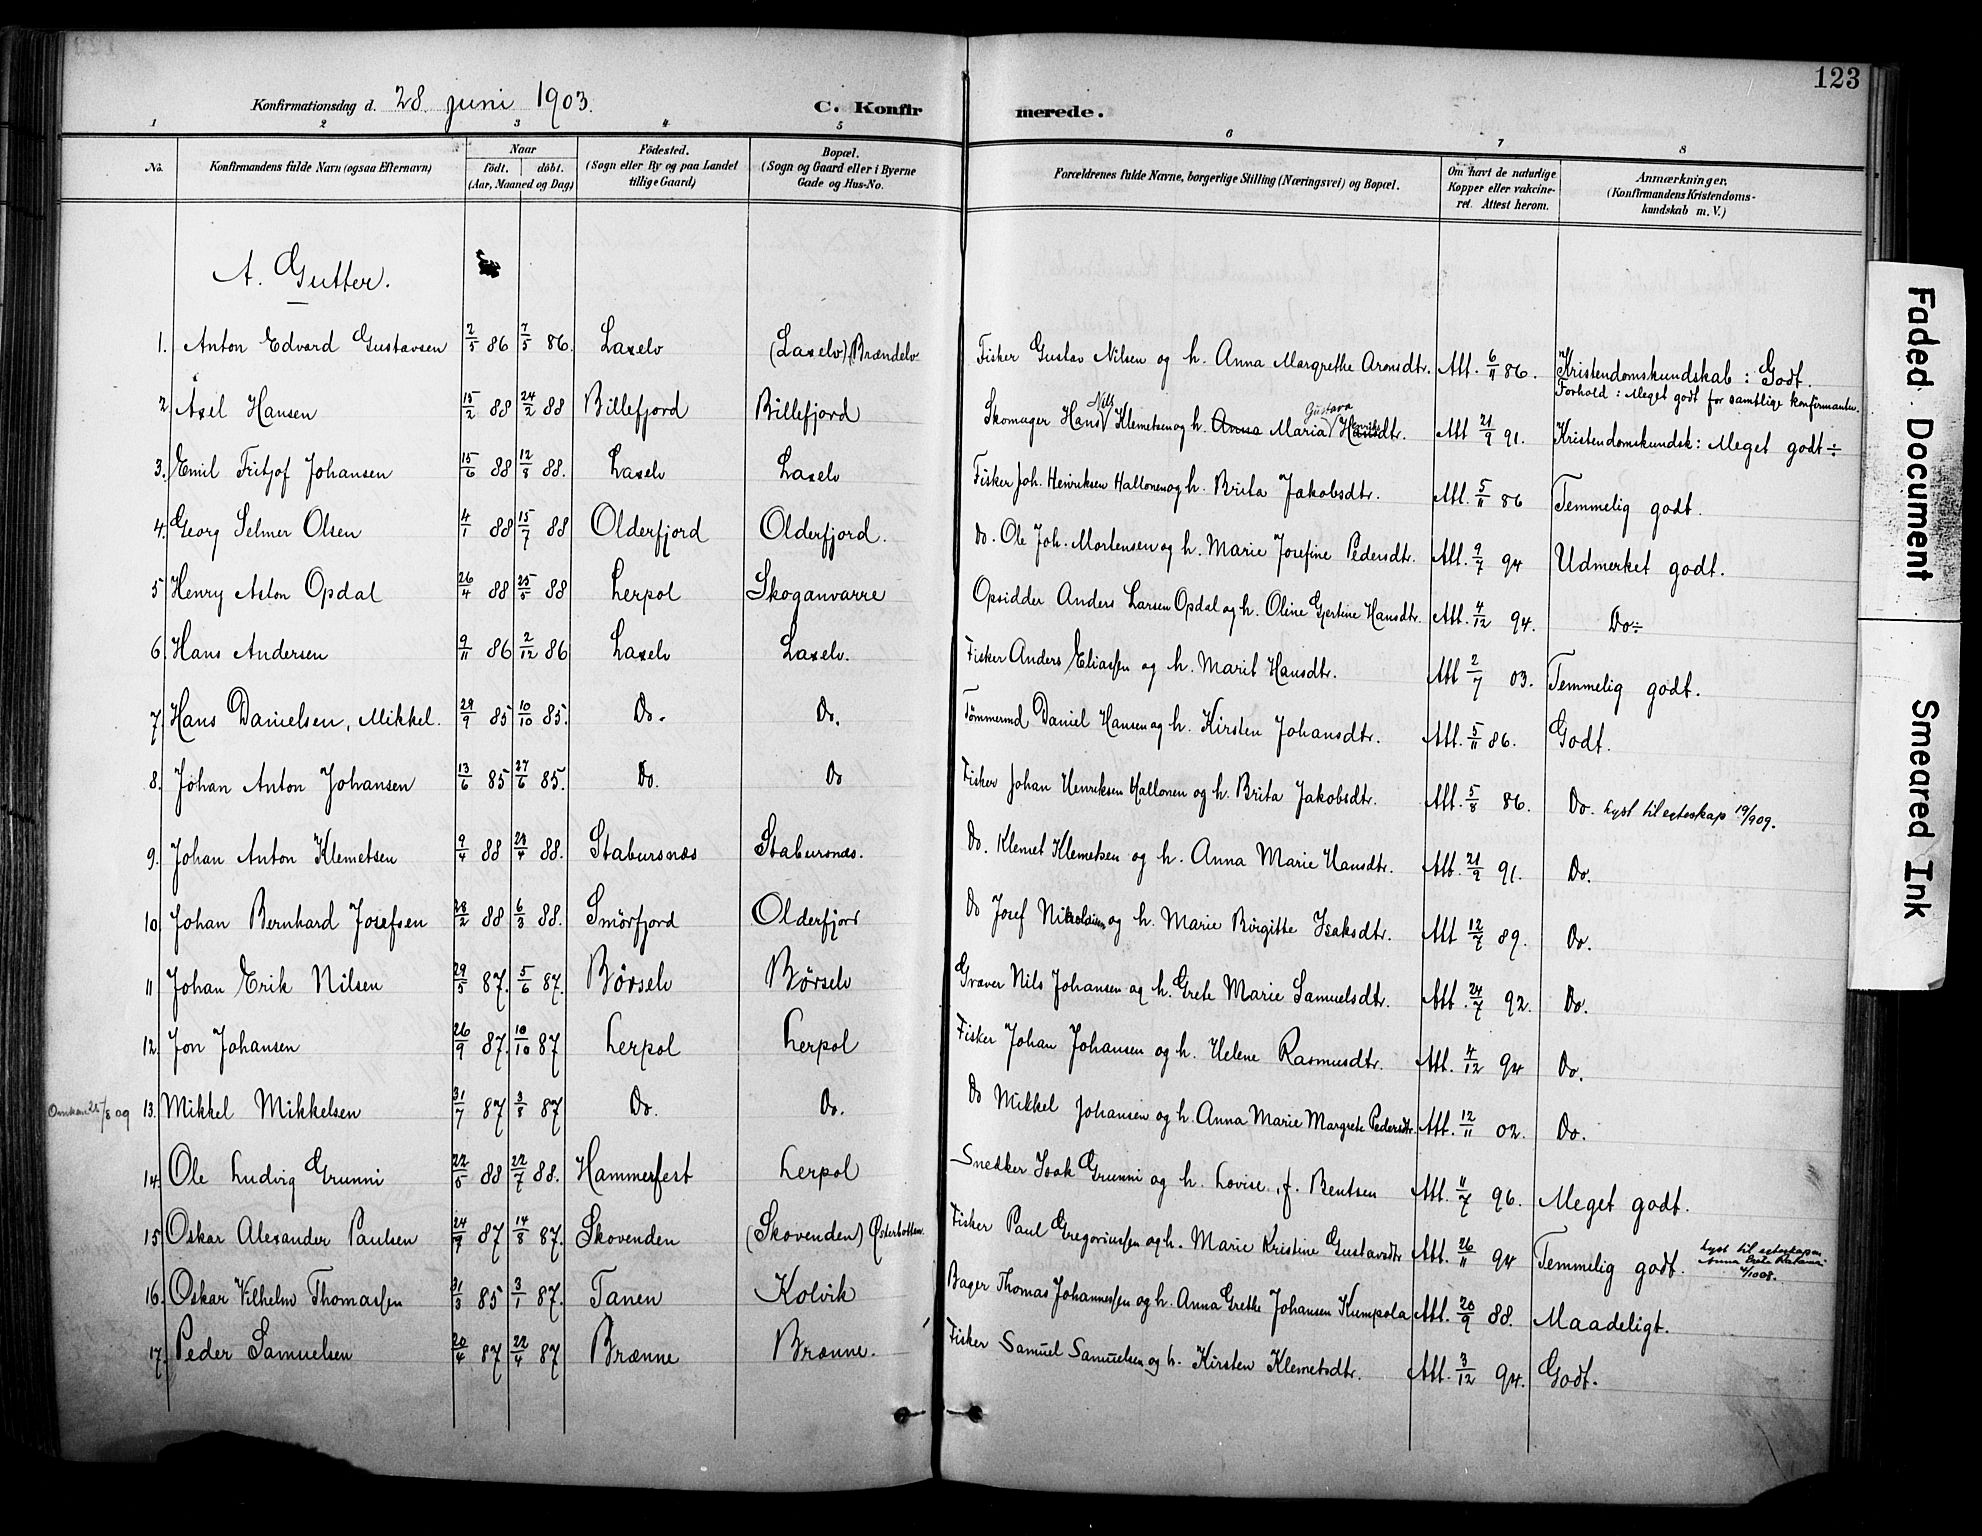 123
Konfirmationsdag d. 28. juni 1903.
C. Konfirmerede.
1 2 3 4 5 6 7 8
No. Konfirmandens fulde Navn (ogsaa Efternavn) Naar födt. döbt. (Aar, Maaned og Dag) Födested. (Sogn eller By og paa Landet tillige Gaard) Bopæl. (Sogn og Gaard eller i Byerne Gade og Hus-No. Forældrenes fulde Navne, borgerlige Stilling (Næringsvei) og Bopæl. Om havt de naturlige Kopper eller vakcineret. Attest herom. Anmærkninger. (Konfirmandens Kristendomskundskab m. V.)
A. Gutter.
1. Anton Edvard Gustavsen 2/5 86 7/5 86. Laxelv (Laxelv) Brændelv Fisker Gustav Nilsen og h. Anna Margrethe Aronsdtr. Att. 6/11 86. Kristendomskundskab: Godt.
Forhold: Meget godt for samtlige konfirmanter.
2. Axel Hansen 15/2 88 24/2 88 Billefjord Billefjord Skomager Hans Nils Klemetsen og h. Anna Maria Gustava Att 21/9 91. Kristendomskundsk: Meget godt ÷
3. Emil Fritjof Johansen 15/6 88 12/8 88. Laxelv Laxelv Fisker Joh. Henriksen Hallonen og h. Brita Jakobsdtr. Att. 5/11 86 Temmelig godt.
4. Georg Selmer Olsen 4/1 88 15/7 88 Olderfjord Olderfjord. Do. Ole Joh. Mortensen og h. Marie Josefine Pedersdtr. Att. 9/7 94 Udmerket godt.
5 Henry Aston Opdal 26/4 88 25/5 88 Lerpol Skoganvarre Opsidder Anders Larsen Opdal og h. Oline Gertine Hansdtr. Att. 4/12 94. Do ÷
6. Hans Andersen 9/11 86 2/12 86 Laxelv Laxelv. Fisker Anders Eliassen og h. Marit Hansdtr. Att 2/7 03. Temmelig godt.
7. Hans Danielsen, Mikkel. 29/9 85 10/10 85. Do. Do. Tömmermd Daniel Hansen og h. Kirsten Johansdtr. Att. 5/11 86. Godt.
8. Johan Anton Johansen 13/6 85 27/6 85. Do. Do Fisker Johan Henriksen Hallonen og h. Brita Jakobsdtr. Att. 5/8 86. Do. Lyst til egteskap 19/909.
9. Johan Anton Klemetsen 9/4 88 28/4 88. Stabursnæs Stabursnæs. Do. Klemet Klemetsen og h. Anna Marie Hansdtr. Att. 21/9 91. Do.
10 Johan Bernhard Josefsen 28/2 88 6/3 88. Smörfjord Olderfjord Do Josef Nikolaisen og h. Marie Birgitte Isaksdtr. Att 12/7 89. Do.
11 Johan Erik Nilsen 29/5 87. 5/6 87. Börselv Börselv Graver Nils Johansen og h. Grete Marie Samuelsdtr. Att. 24/7 92. Do.
12. Jon Johansen 26/9 87. 10/10 87 Lerpol Lerpol Fisker Johan Johansen og h. Helene Rasmusdtr. Att. 4/12 94 Do.
13. Mikkel Mikkelsen 31/7 87 3/8 87 Do. Do. Do Mikkel Johansen og h. Anna Marie Margrete Pedersdtr. Att. 12/11 02. Do.
14. Ole Ludvig Grunni 22/5 88 22/7 88. Hammerfest Lerpol Snedker Isak Grunni og h. Lovise, f. Bentsen Att. 11/7 96. Meget godt.
15 Oskar Alexander Paulsen 24/7 87 14/8 87. Skovenden (Skovenden) Österbotten Fisker Paul Gregoriussen og h. Marie Kristine Gustavsdtr Att. 26/11 94 Temmelig godt. Lyst til egteskap
16. Oskar Vilhelm Thomassen 31/3 85 3/1 87. Tanen Kolvik Bager Thomas Johannessen og h. Anna Grethe Johansen Kumpola Att. 20/9 88. Maadeligt.
17. Peder Samuelsen 20/4 87 22/4 87 Brænne Brænne. Fisker Samuel Samuelsen og h. Kirsten Klemetsdtr. Att. 3/12 94. Godt.
Faded Document
Smeared Ink